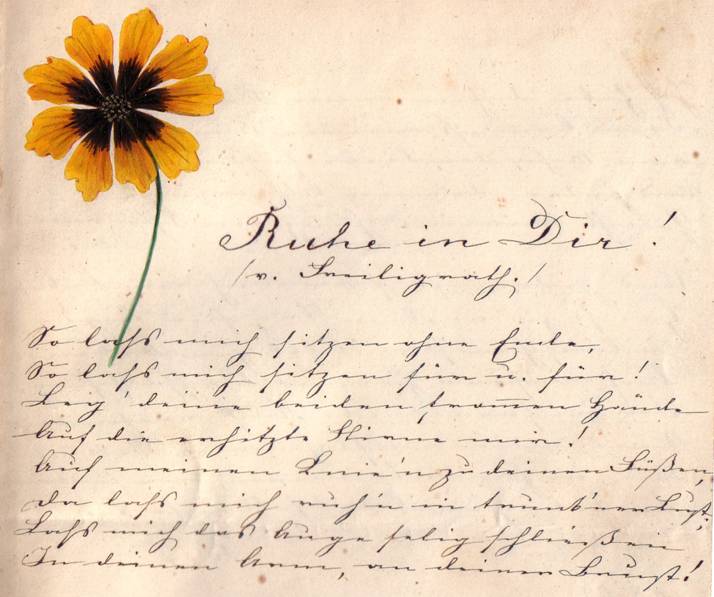 Ruhe in Dir!
/v. Freiligrath./
So lass mich sitzen ohne Ende,
So lass mich sitzen für u. für!
Leg' deine beiden frommen Hände
Auf die erhitzte Stirne mir!
Auf meinen Knie'n zu deinen Füßen,
Da lass mich ruh'n in trunk'ner Lust;
Lass mich das Auge selig schließen
In deinem Arm, an deiner Brust!